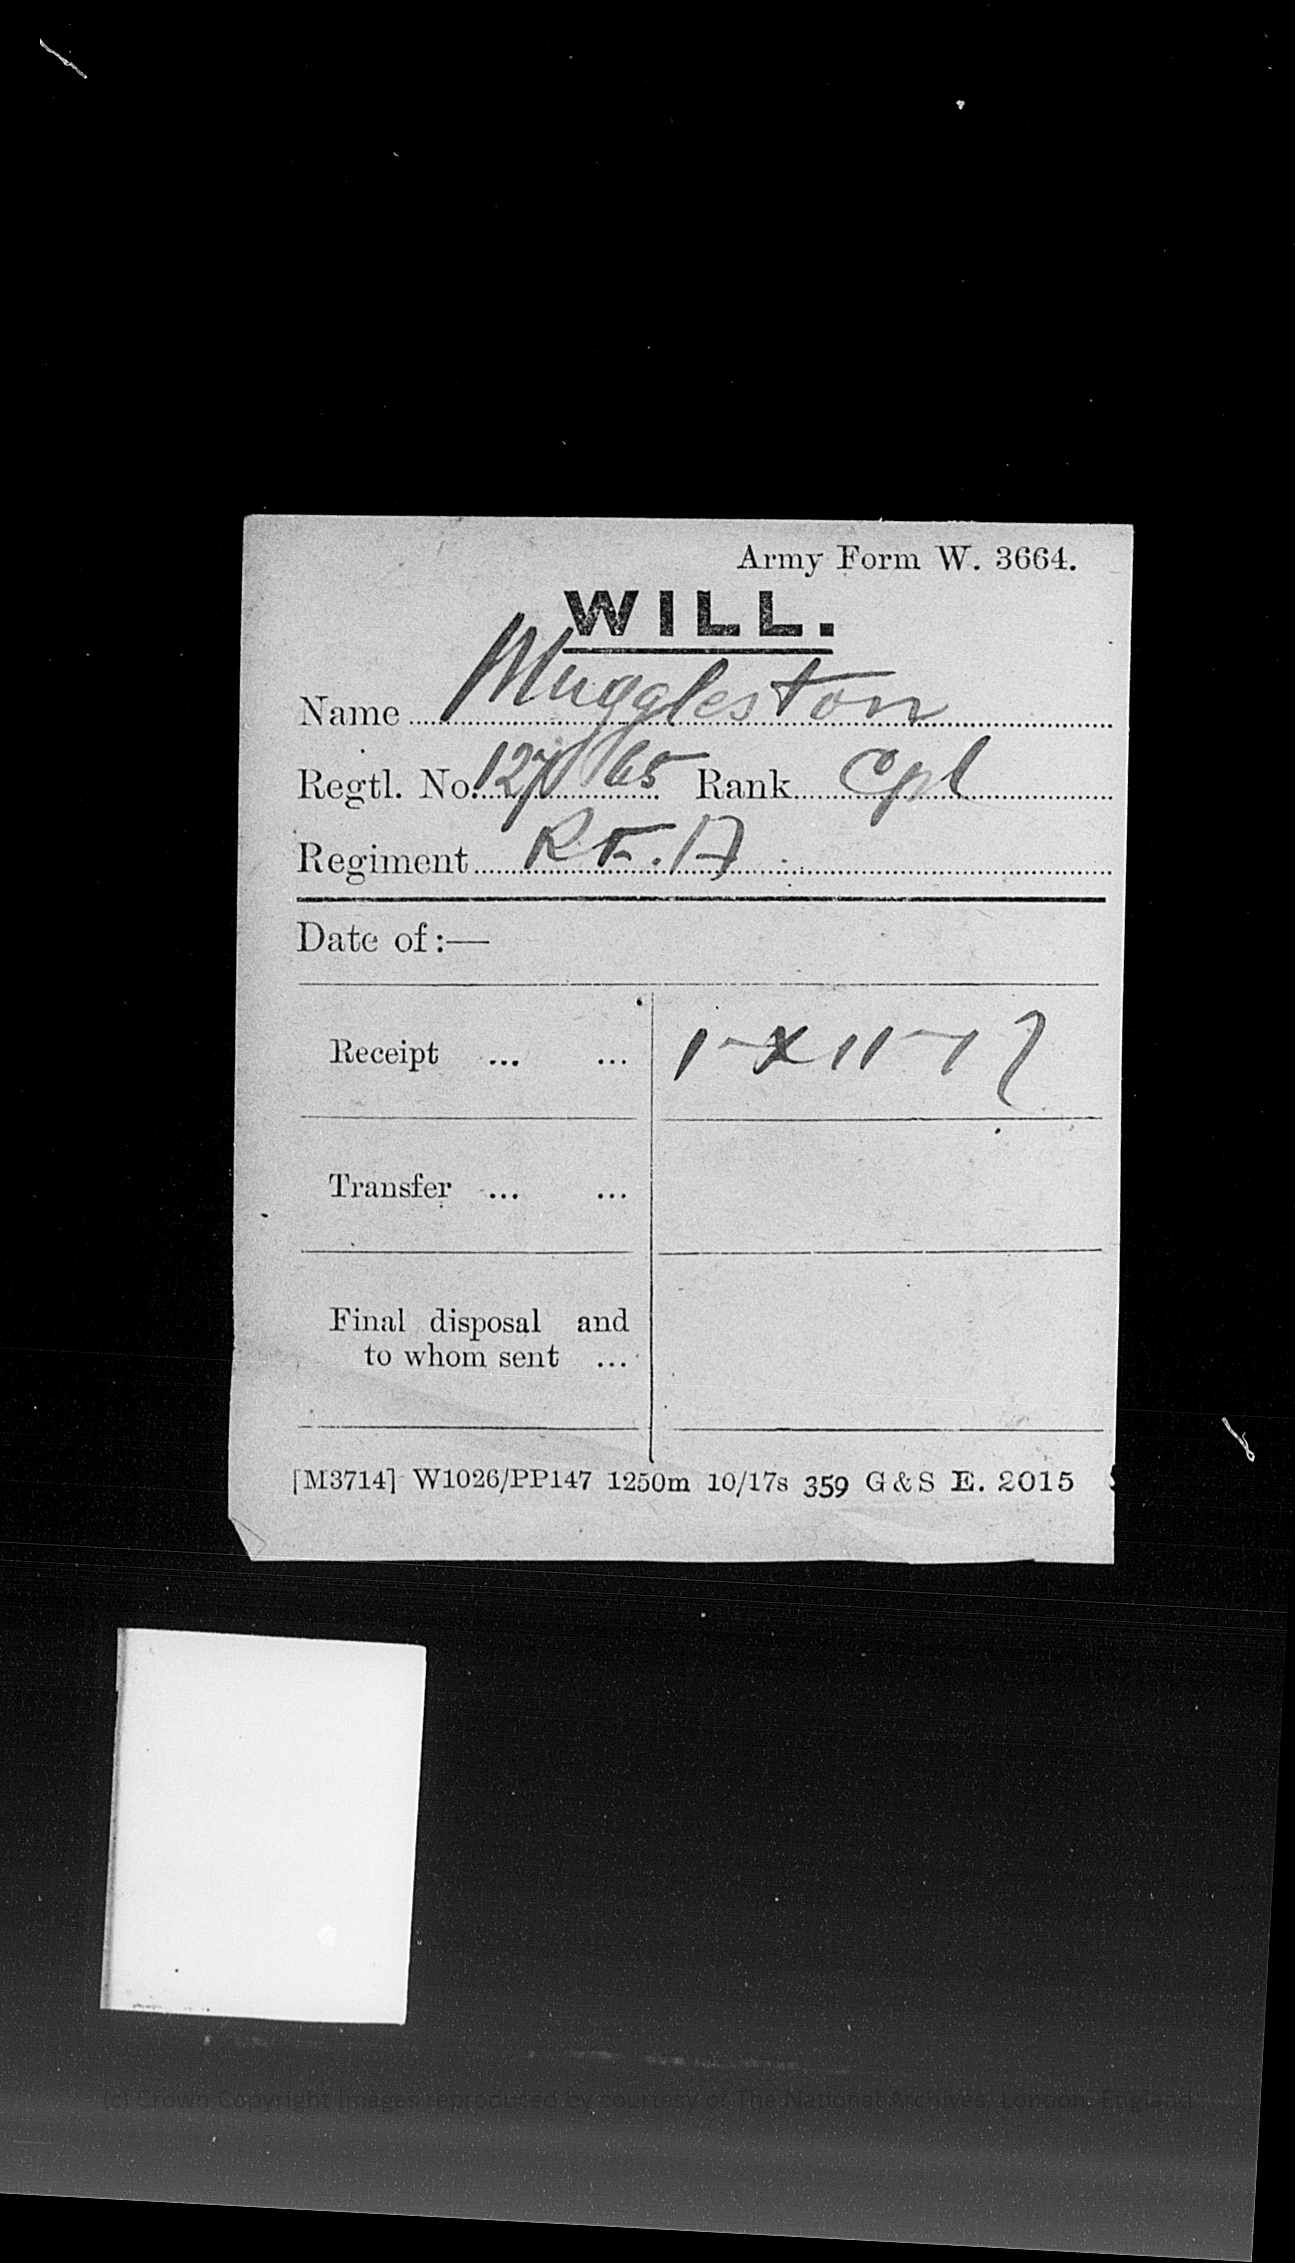 Army Form W. 3664.
WILL.
Name Muggleston
Regtl. No. 127165 Rank Cpl
Regiment R.F.A
Date of :—
Receipt ... ... 1-X11-17
Transfer ... ...
Final disposal and
to whom sent ...
[M3714] W1026/PP147 1250m 10/17s 359 G & S E. 2015
(c) Crown Copyright Images reproduced by courtesy of The National Archives, London, England.